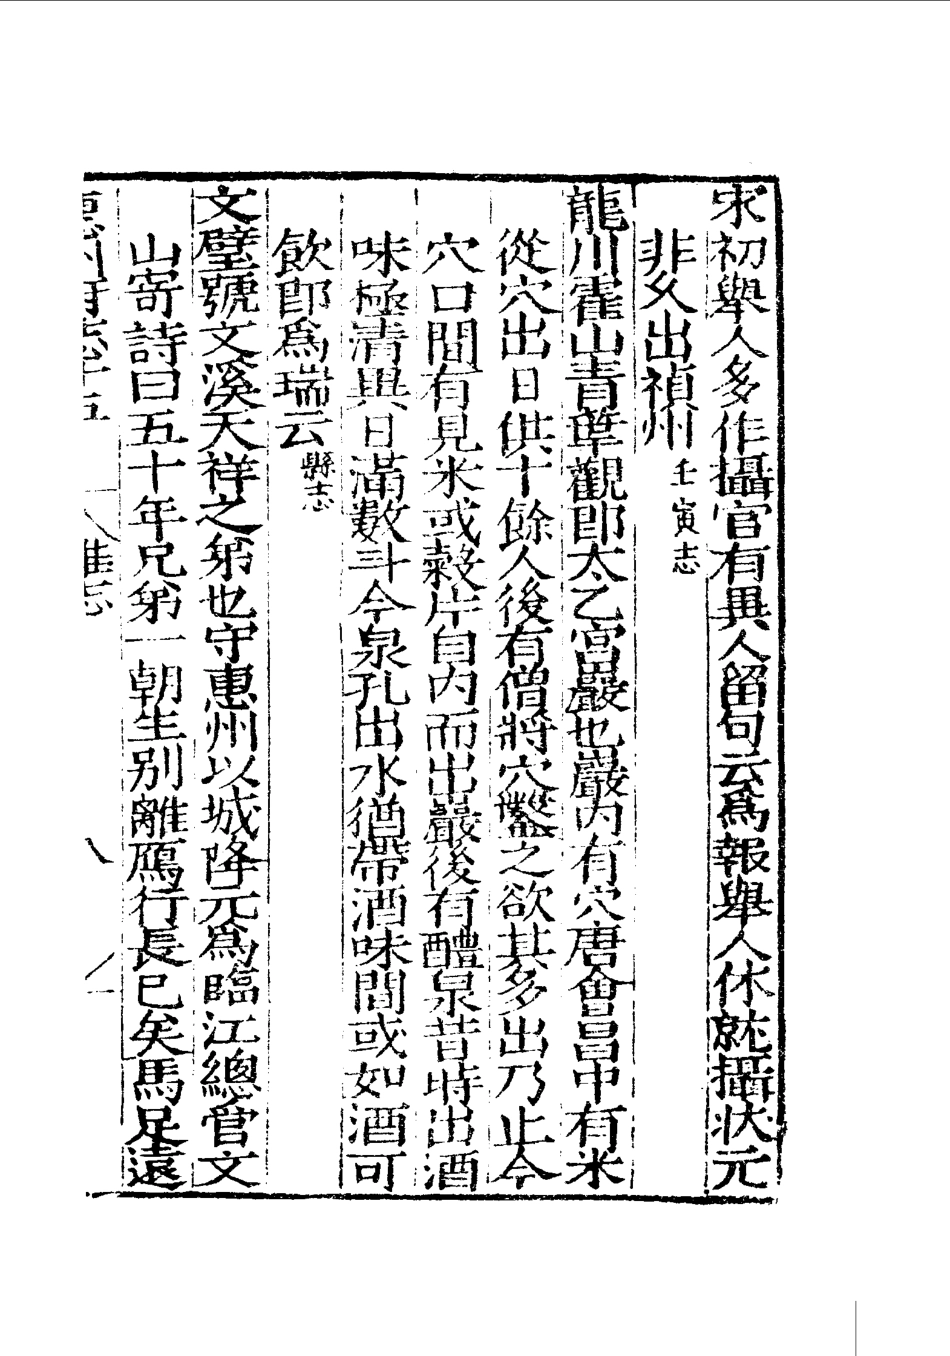 宋初舉人多作攝官有異人留句云爲報舉人休就攝狀元
非乆出禎州 壬寅志
龍川霍山青華觀即太乙宮巖也巖内有穴唐會昌中有米
從穴出日供十餘人後有僧將穴鑿之欲其多出乃止今
穴口間有見米或穀片自内而出巖後有醴泉昔時出酒
味極清異日滿數斗今泉孔出水猶帶酒味間或如酒可
飲即爲瑞云 縣志
文璧號文溪天祥之弟也守惠州以城降元爲臨江總管文
山寄詩曰五十年兄弟一朝生别離鴈行長已矣馬足遠
惠州府志 五 雜志